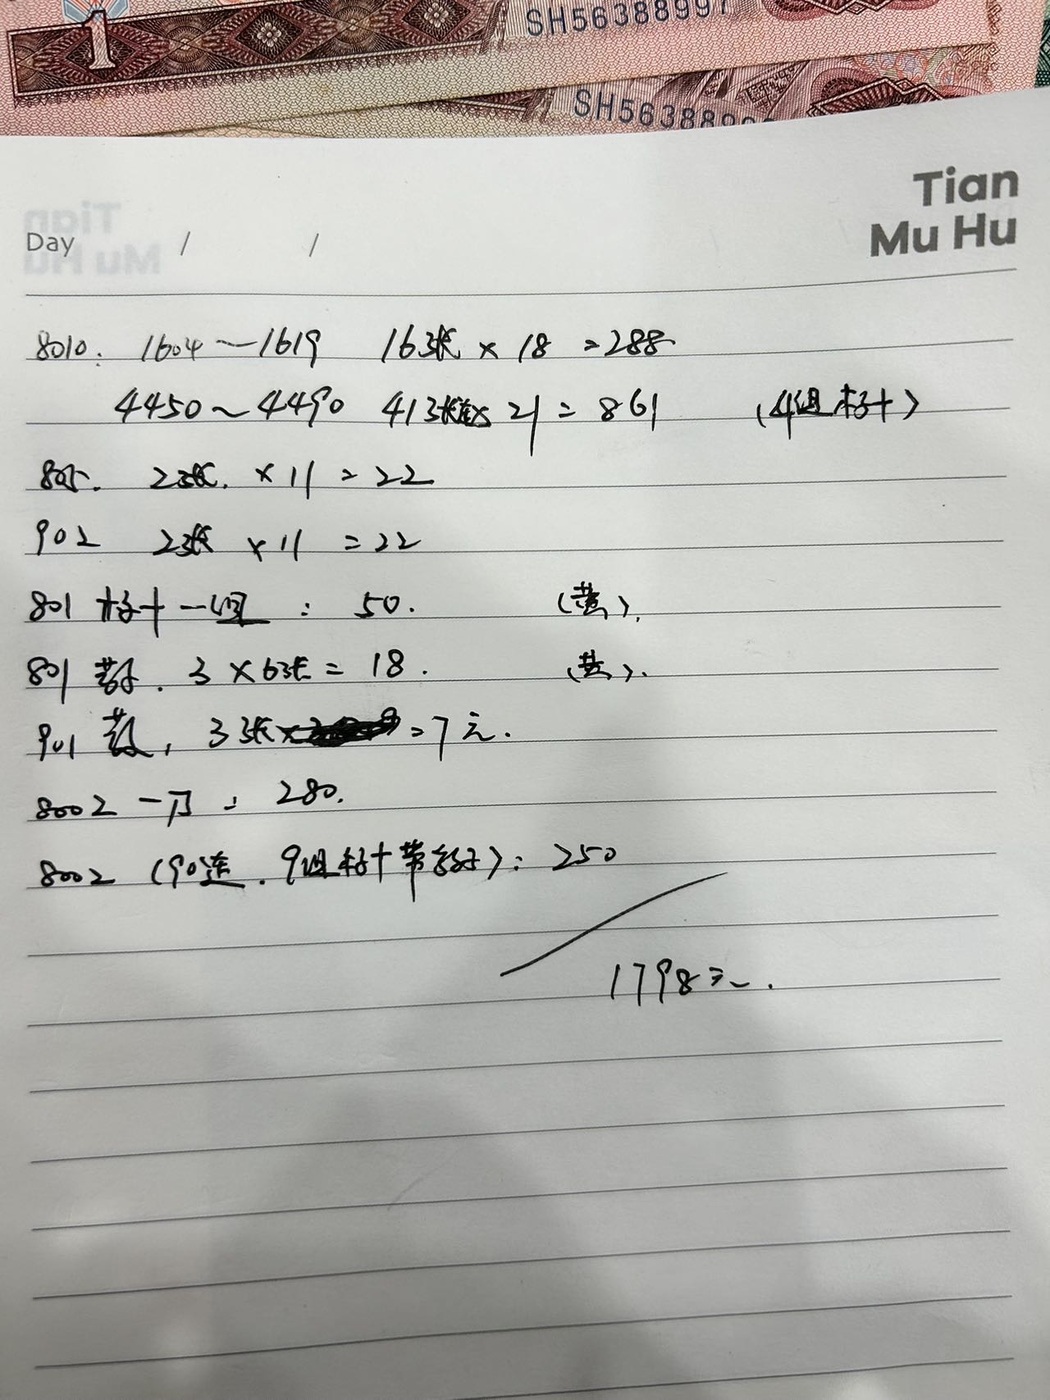 SH56388997
SH563889
Tian
Mu Hu
Day / /
8010. 1604～1619 16张 × 18 = 288
4450～4490 41张 × 21 = 861 (4组标十)
805. 2张. × 11 = 22
902 2张 × 11 = 22
801 标十一组 : 50. (黄).
801 散. 3 × 6张 = 18. (黄).
901 散, 3张× = 7元.
8002 一刀 : 280.
8002 (90连. 9组标十带好): 250
1798元.